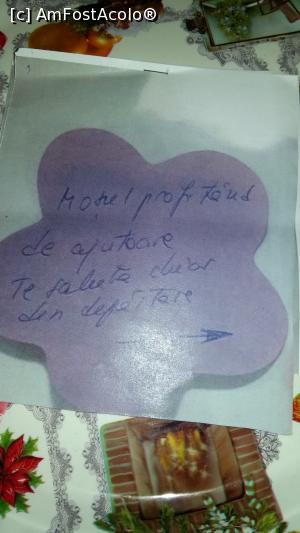 [c] AmFostAcolo®
1
Moșul profitând
de ajutoare
Te saluta chiar
din depărtare